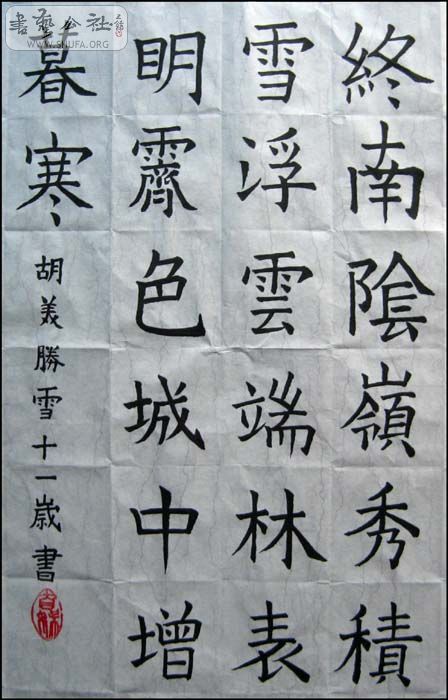 終南陰嶺秀積
雪浮雲端林表
明霽色城中增
暮寒
胡美勝雪十一歲書
書藝公社
WWW.SHUFA.ORG